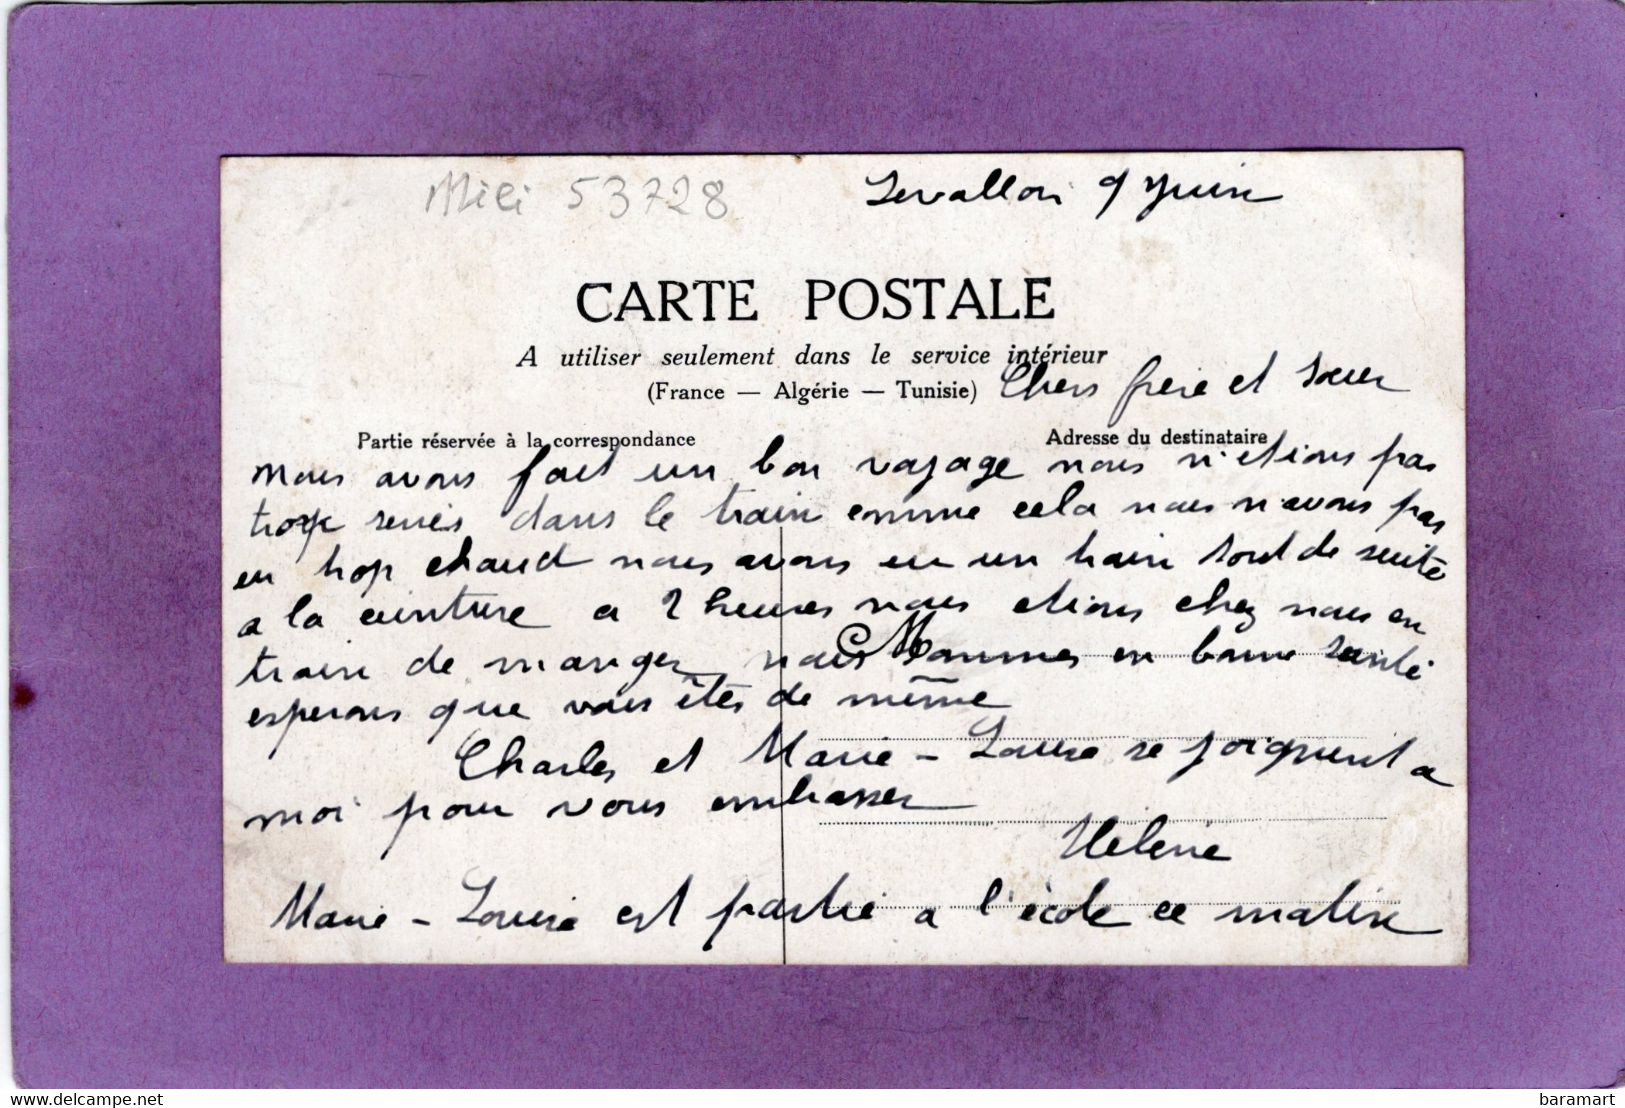 Mili 53728
Levallois 9 Juin
CARTE POSTALE
A utiliser seulement dans le service intérieur
(France — Algérie — Tunisie)
Chers frère et soeur
Partie réservée à la correspondance
Adresse du destinataire
nous avons fait un bon voyage nous n'etions pas
trop serrés dans le train comme cela nous n'avons pas
eu trop chaud nous avons eu un train tout de suite
a la ceinture a 2 heures nous etions chez nous en
train de manger nous sommes en bonne santé
esperons que vous êtes de même
Charles et Marie-Louise se joignent a
moi pour vous embrasser
Helene
Marie-Louise est partie a l'école ce matin
www.delcampe.net
baramart